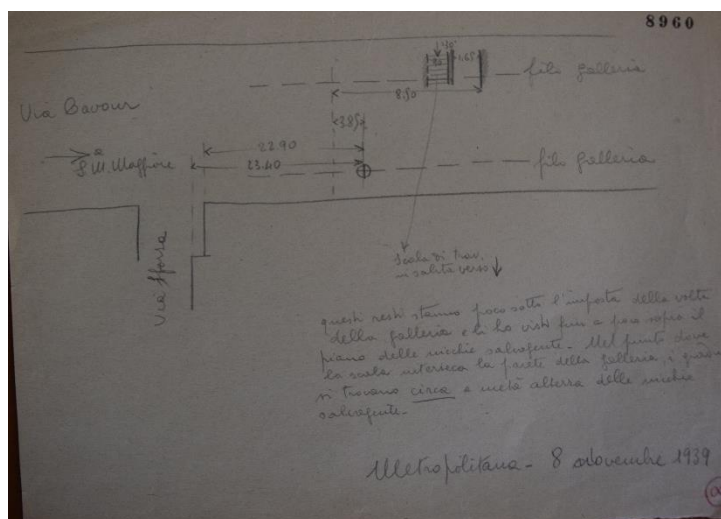 8960
1.40
1.65
filo galleria
8.50
Via Cavour
3.85
22.90
a
S. M. Maggiore
23.40
filo galleria
Via Sforza
Scala di trav.
in salita verso
questi resti stanno poco sotto l'imposta della volta
della galleria e li ho visti fino a poco sopra il
piano delle nicchie salvagente - Nel punto dove
la scala interseca la parete della galleria, i gradini
si trovano circa a metà altezza delle nicchie
salvagente -
Metropolitana - 8 Novembre 1939